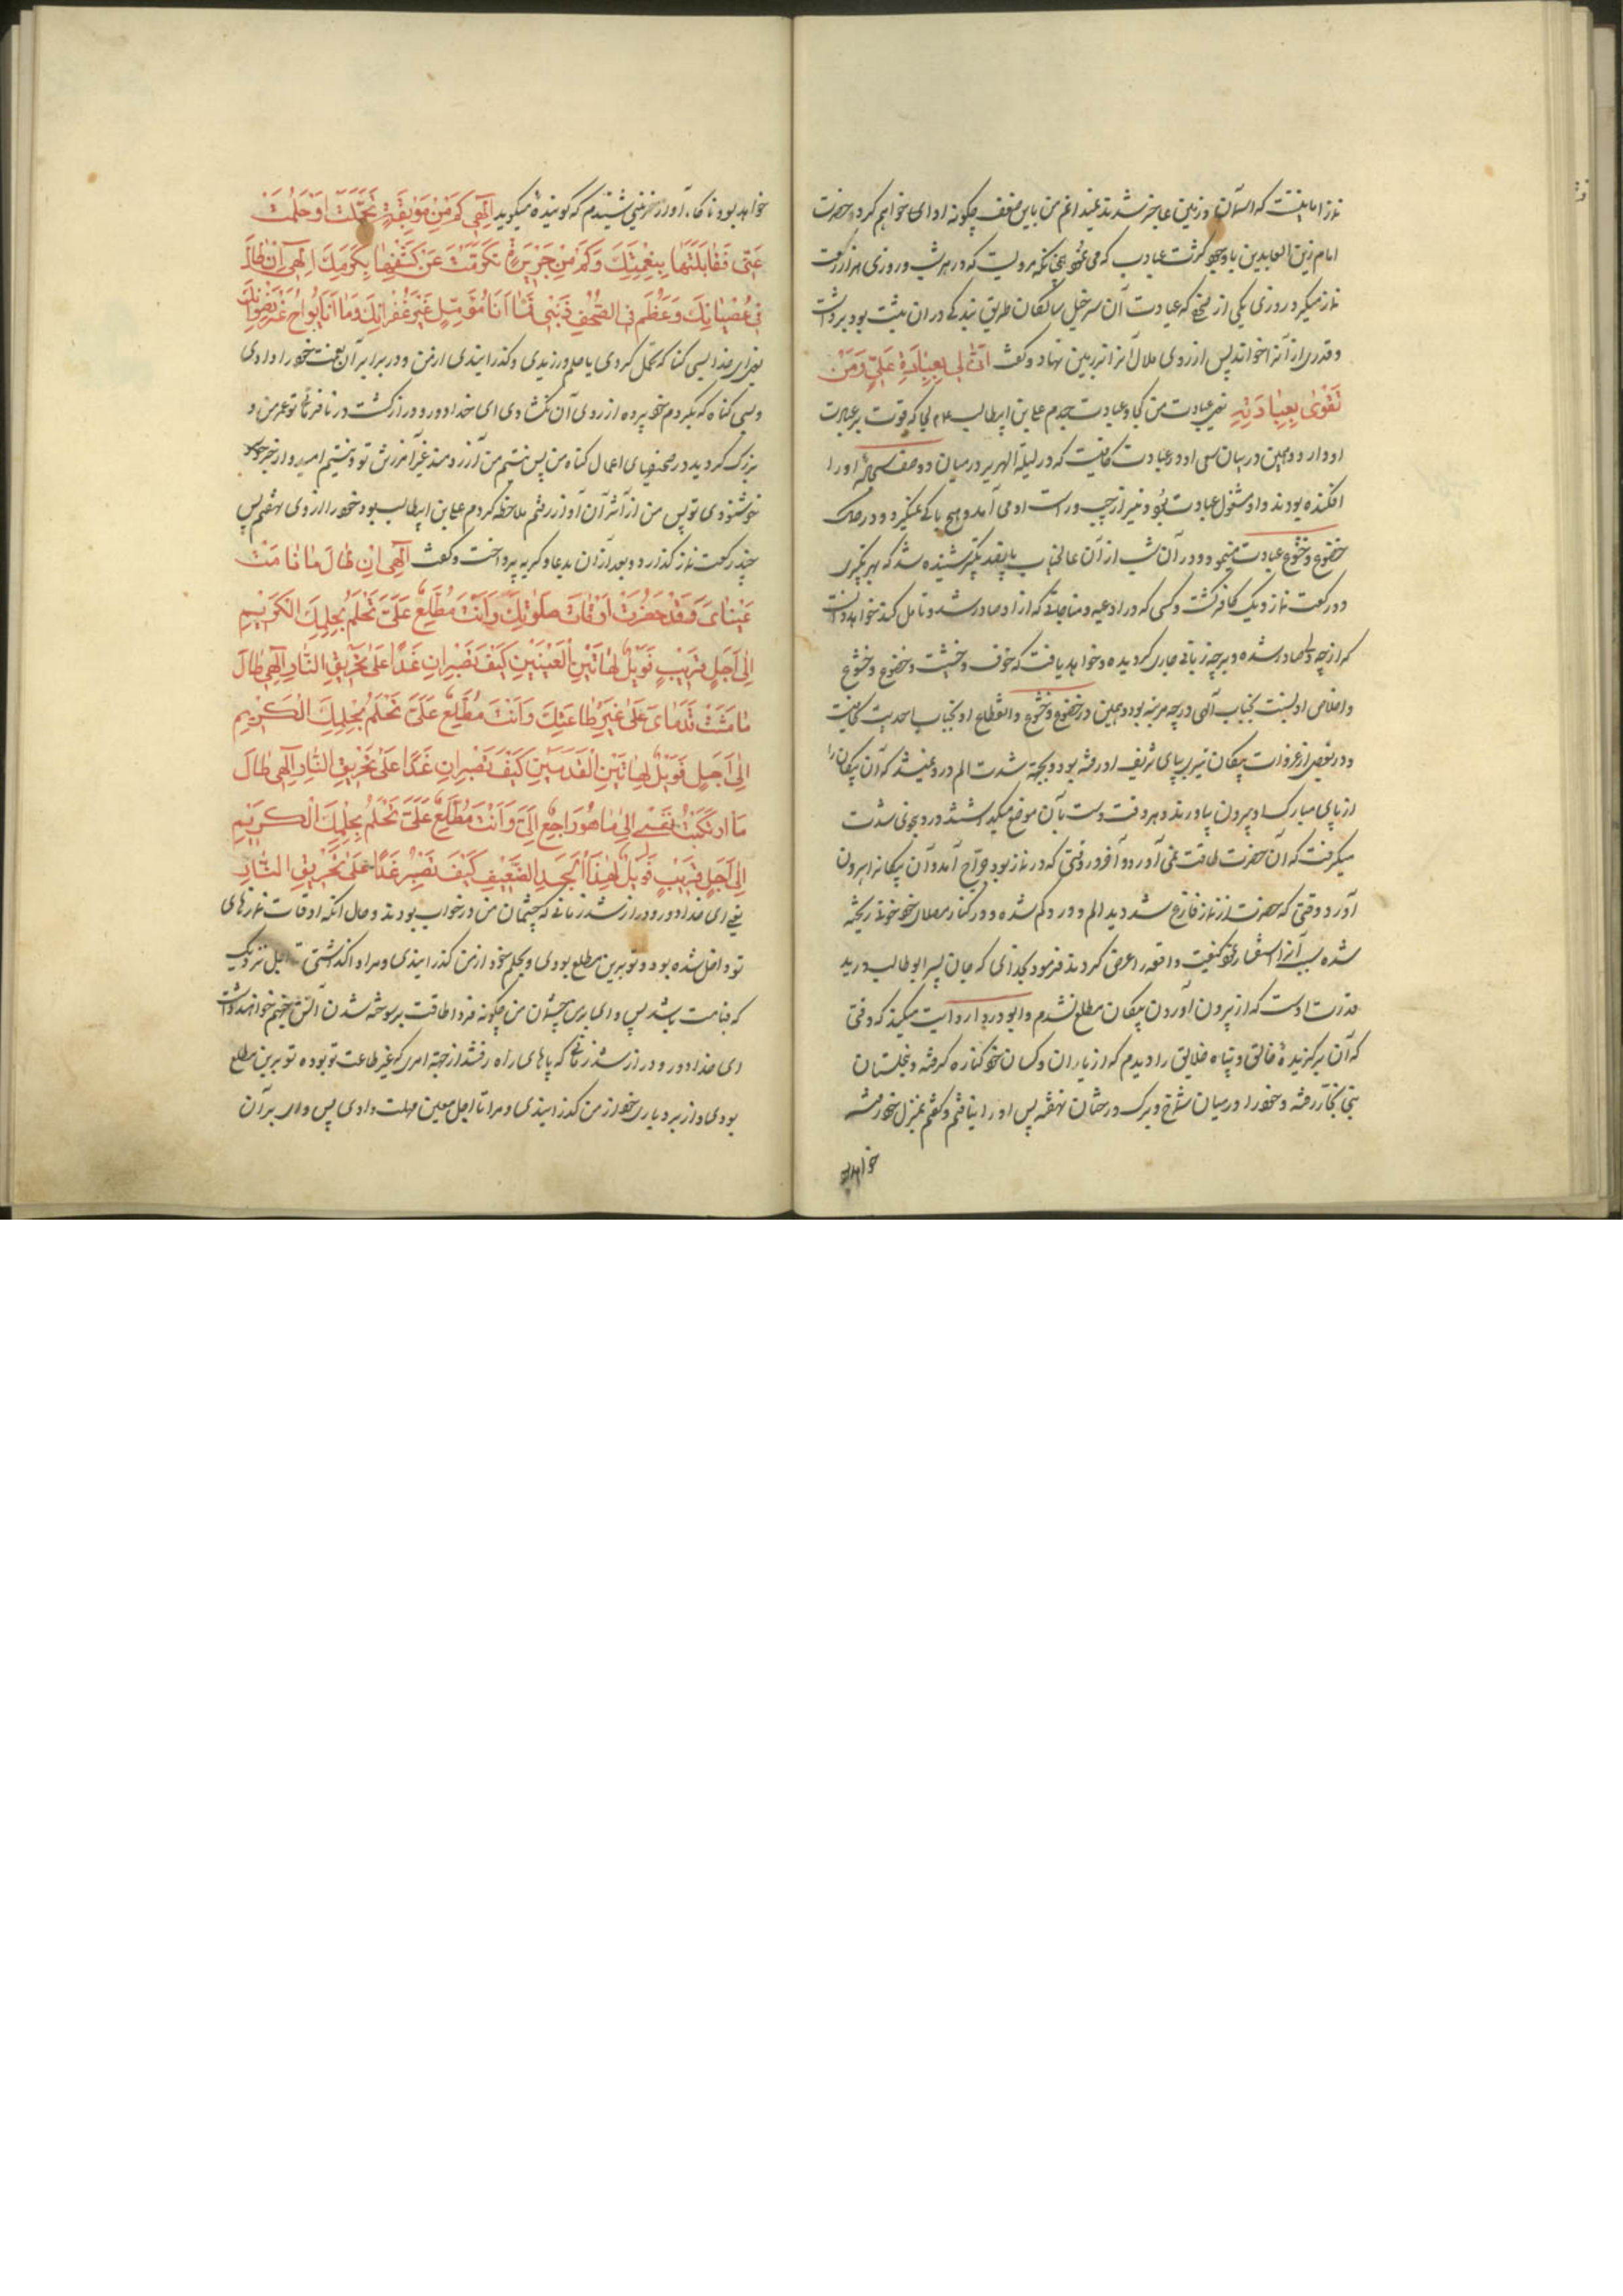 نماز اما نیست که آسمان و زمین عاجز شدند نمیدانم من باین ضعف چگونه ادای خواهم کرد و حضرت
امام زین العابدین با وجود کثرت عبادت که می نمود چنانکه مرویست که در هر شب و روزی هزار رکعت
نماز میکرد روزی یکی از صحف که عبادت آن سرخیل سالکان طریق بندگی در ان ثبت بود برداشت
و قدری از آنرا خواند پس از روی ملال آنرا بر زمین نهاد و گفت أنّٰى لي بِعِبادَةِ عَلِيٍّ وَمَنْ
تَقْوىٰ بِعِبادَتِهِ یعنی عبادت من کجا و عبادت جدم علی بن ابیطالب ع م کجا که قوت بر عبادت
او دارد و همین در بیان سعی او در عبادت کافیست که در لیلة الهریر در میان دو صف سجاده او را
افکنده بودند و او مشغول عبادت بود و تیر از چپ و راست او می آمد و هیچ باکی نمیکرد و در کمال
خضوع و خشوع عبادت مینمود و در آن شب از آن عالیجناب پانصد تکبیر شنیده شد که بهر تکبیری
دو رکعت نماز و یک کافر کشت و کسی که در ادعیه و مناجات که از او صادر شد و تامل کند خواهد دانست
که از چه دل صادر شده و بر چه زبانی جاری گردیده و خواهد یافت که خوف و خشیت و خضوع و خشوع
و اخلاص او نسبت بجناب آلهی در چه مرتبه بود و همین در خضوع و خشوع و انقطاع او بجناب احدیت کافیست
و در بعضی از غزوات پیکان تیر بپای شریف او رفته بود و بجهة شدت الم درد نمیشد که آن پیکان را
از پای مبارکش او بیرون بیاورند و هر وقت دست بآن موضع میگذاشتند درد بنوعی شدت
میگرفت که آن حضرت طاقت نمی آورد و آخر در وقتی که در نماز بود جراح آمد و آن پیکانرا بیرون
آورد و وقتی که حضرت از نماز فارغ شد دید الم و درد کم شده و در کنار مصلای خود خونی ریخته
شده سبب آنرا استفسار نمود کیفیت واقعه را عرض کردند فرمود بخدائی که جان پسر ابوطالب در ید
قدرت اوست که از بیرون آوردن پیکان مطلع نشدم و ابو دردا روایت میکند که وقتی
که آن برگزیدهٔ خالق و پناه خلایق را دیدم که از یاران و کسان خود کناره گرفته و بنخلستان
بنی نجار رفته و خود را در میان شاخ و برگ درختان نهفته پس او را نیافتم و گفتم بمنزل خود رفته
خواهد بود
خواهد بود ناگاه آواز حزینی شنیدم که گوینده میگوید إِلٰهِي كَمْ مِنْ مُوبِقَةٍ تَحَمَّلْتَ أَوْ حَلُمْتَ
عَنّي فَقابَلْتَها بِنِعْمَتِكَ وَكَمْ مِنْ جَرِيرَةٍ تَكَرَّمْتَ عَنْ كَشْفِها بِكَرَمِكَ إِلٰهِي إِنْ طالَ
في عِصْيانِكَ وَعَظُمَ فِي الصُّحُفِ ذَنْبي فَما أَنَا مُؤَمِّلٍ غَيْرَ غُفْرانِكَ وَما أَنَا بِراجٍ غَيْرَ رِضْوانِكَ
یعنی ای خدا بسی گناه که تحمل کردی یا حلم ورزیدی و گذرانیدی از من و در برابر آن نعمت خود را دادی
و بسی گناه که بکردم خود پرده از روی آن نگشادی ای خدا دور و دراز گشت در نافرمانی تو عمر من و
بزرگ گردید در صحیفهای اعمال گناه من پس نیستم من آرزومند غیر آمرزش تو و نیستم امیدوار جز
خوشنودی تو پس من از اثر آن آواز رفتم ملاحظه کردم علی بن ابیطالب بود خود را از وی نهفتم پس
چند رکعت نماز گذارد و بعد از آن بدعا و گریه پرداخت و گفت إِلٰهِي إِنْ طالَ ما نامَتْ
عَيْنايَ وَقَدْ حَضَرَتْ أَوْقاتُ صَلَواتِكَ وَأَنْتَ مُطَّلِعٌ عَلَيَّ تَحْلُمُ بِحِلْمِكَ الْكَرِيمِ
إِلىٰ أَجَلٍ قَرِيبٍ فَوَيْلٌ لِهاتَيْنِ الْعَيْنَيْنِ كَيْفَ تَصْبِرانِ غَدًا عَلىٰ تَحْرِيقِ النّارِ إِلٰهِي طالَ
ما مَشَتْ قَدَمايَ عَلىٰ غَيْرِ طاعَتِكَ وَأَنْتَ مُطَّلِعٌ عَلَيَّ تَحْلُمُ بِحِلْمِكَ الْكَرِيمِ
إِلىٰ أَجَلٍ فَوَيْلٌ لِهاتَيْنِ الْقَدَمَيْنِ كَيْفَ تَصْبِرانِ غَدًا عَلىٰ تَحْرِيقِ النّارِ إِلٰهِي طالَ
مَا ارْتَكَبَتْ نَفْسي إِلىٰ ما هُوَ راجِعٌ إِلَيَّ وَأَنْتَ مُطَّلِعٌ عَلَيَّ تَحْلُمُ بِحِلْمِكَ الْكَرِيمِ
إِلىٰ أَجَلٍ قَرِيبٍ فَوَيْلٌ لِهٰذَا الْجَسَدِ الضَّعِيفِ كَيْفَ تَصْبِرُ غَدًا عَلىٰ تَحْرِيقِ النّارِ
یعنی ای خدا دور و دراز شد زمانی که چشمان من در خواب بودند و حال آنکه اوقات نمازهای
تو داخل شده بود و تو برین مطلع بودی و بحلم خود از من گذرانیدی و مرا وا گذاشتی تا اجل نزدیک
که قیامت باشد پس وای برین چشمان من چگونه فردا طاقت بر سوخته شدن آتش جهنم خواهند داشت
ای خدا دور و دراز شد زمانی که پاهای راه رفتند از جهة امری که غیر طاعت تو بوده تو برین مطلع
بودی و از بردباری خود از من گذرانیدی و مرا تا اجل معین مهلت دادی پس وای بر آن